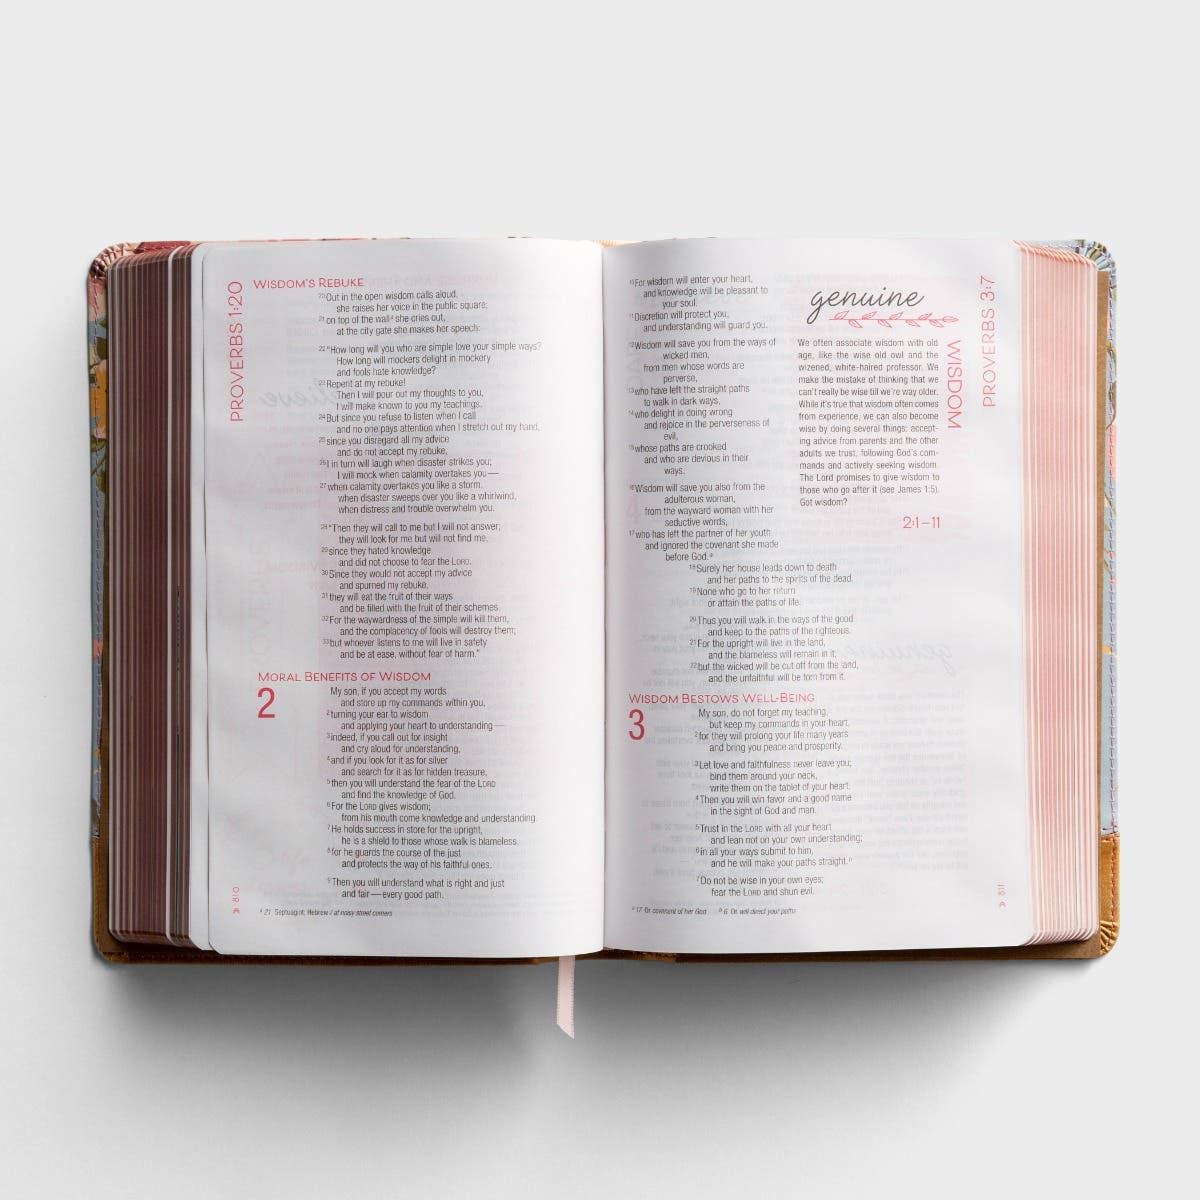 PROVERBS 1:20
WISDOM'S REBUKE
20 Out in the open wisdom calls aloud,
she raises her voice in the public square;
21 on top of the wall a she cries out,
at the city gate she makes her speech:
22 "How long will you who are simple love your simple ways?
How long will mockers delight in mockery
and fools hate knowledge?
23 Repent at my rebuke!
Then I will pour out my thoughts to you,
I will make known to you my teachings.
24 But since you refuse to listen when I call
and no one pays attention when I stretch out my hand,
25 since you disregard all my advice
and do not accept my rebuke,
26 I in turn will laugh when disaster strikes you;
I will mock when calamity overtakes you—
27 when calamity overtakes you like a storm,
when disaster sweeps over you like a whirlwind,
when distress and trouble overwhelm you.
28 "Then they will call to me but I will not answer;
they will look for me but will not find me,
29 since they hated knowledge
and did not choose to fear the LORD.
30 Since they would not accept my advice
and spurned my rebuke,
31 they will eat the fruit of their ways
and be filled with the fruit of their schemes.
32 For the waywardness of the simple will kill them,
and the complacency of fools will destroy them;
33 but whoever listens to me will live in safety
and be at ease, without fear of harm."
MORAL BENEFITS OF WISDOM
2
My son, if you accept my words
and store up my commands within you,
2 turning your ear to wisdom
and applying your heart to understanding—
3 indeed, if you call out for insight
and cry aloud for understanding,
4 and if you look for it as for silver
and search for it as for hidden treasure,
5 then you will understand the fear of the LORD
and find the knowledge of God.
6 For the LORD gives wisdom;
from his mouth come knowledge and understanding.
7 He holds success in store for the upright,
he is a shield to those whose walk is blameless,
8 for he guards the course of the just
and protects the way of his faithful ones.
9 Then you will understand what is right and just
and fair—every good path.
a 21 Septuagint; Hebrew / at noisy street corners
810
10 For wisdom will enter your heart,
and knowledge will be pleasant to
your soul.
11 Discretion will protect you,
and understanding will guard you.
12 Wisdom will save you from the ways of
wicked men,
from men whose words are
perverse,
13 who have left the straight paths
to walk in dark ways,
14 who delight in doing wrong
and rejoice in the perverseness of
evil,
15 whose paths are crooked
and who are devious in their
ways.
16 Wisdom will save you also from the
adulterous woman,
from the wayward woman with her
seductive words,
17 who has left the partner of her youth
and ignored the covenant she made
before God. a
18 Surely her house leads down to death
and her paths to the spirits of the dead.
19 None who go to her return
or attain the paths of life.
20 Thus you will walk in the ways of the good
and keep to the paths of the righteous.
21 For the upright will live in the land,
and the blameless will remain in it;
22 but the wicked will be cut off from the land,
and the unfaithful will be torn from it.
WISDOM BESTOWS WELL-BEING
3
My son, do not forget my teaching,
but keep my commands in your heart,
2 for they will prolong your life many years
and bring you peace and prosperity.
3 Let love and faithfulness never leave you;
bind them around your neck,
write them on the tablet of your heart.
4 Then you will win favor and a good name
in the sight of God and man.
5 Trust in the LORD with all your heart
and lean not on your own understanding;
6 in all your ways submit to him,
and he will make your paths straight. b
7 Do not be wise in your own eyes;
fear the LORD and shun evil.
a 17 Or covenant of her God b 6 Or will direct your paths
genuine
We often associate wisdom with old
age, like the wise old owl and the
wizened, white-haired professor. We
make the mistake of thinking that we
can't really be wise till we're way older.
While it's true that wisdom often comes
from experience, we can also become
wise by doing several things: accept-
ing advice from parents and the other
adults we trust, following God's com-
mands and actively seeking wisdom.
The Lord promises to give wisdom to
those who go after it (see James 1:5).
Got wisdom?
2:1–11
WISDOM
PROVERBS 3:7
811